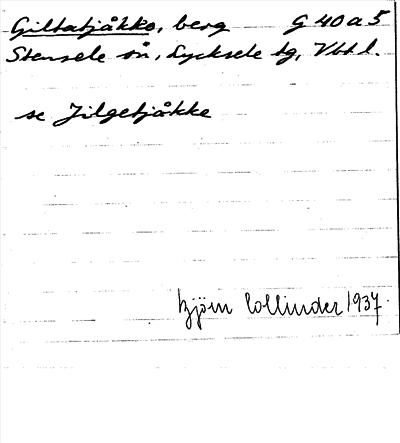 Giltatjåkko, berg G 40 a 5
Stensele sn, Lycksele tg, Vbtl.
se Jilgetjåkke
Björn Collinder 1937.